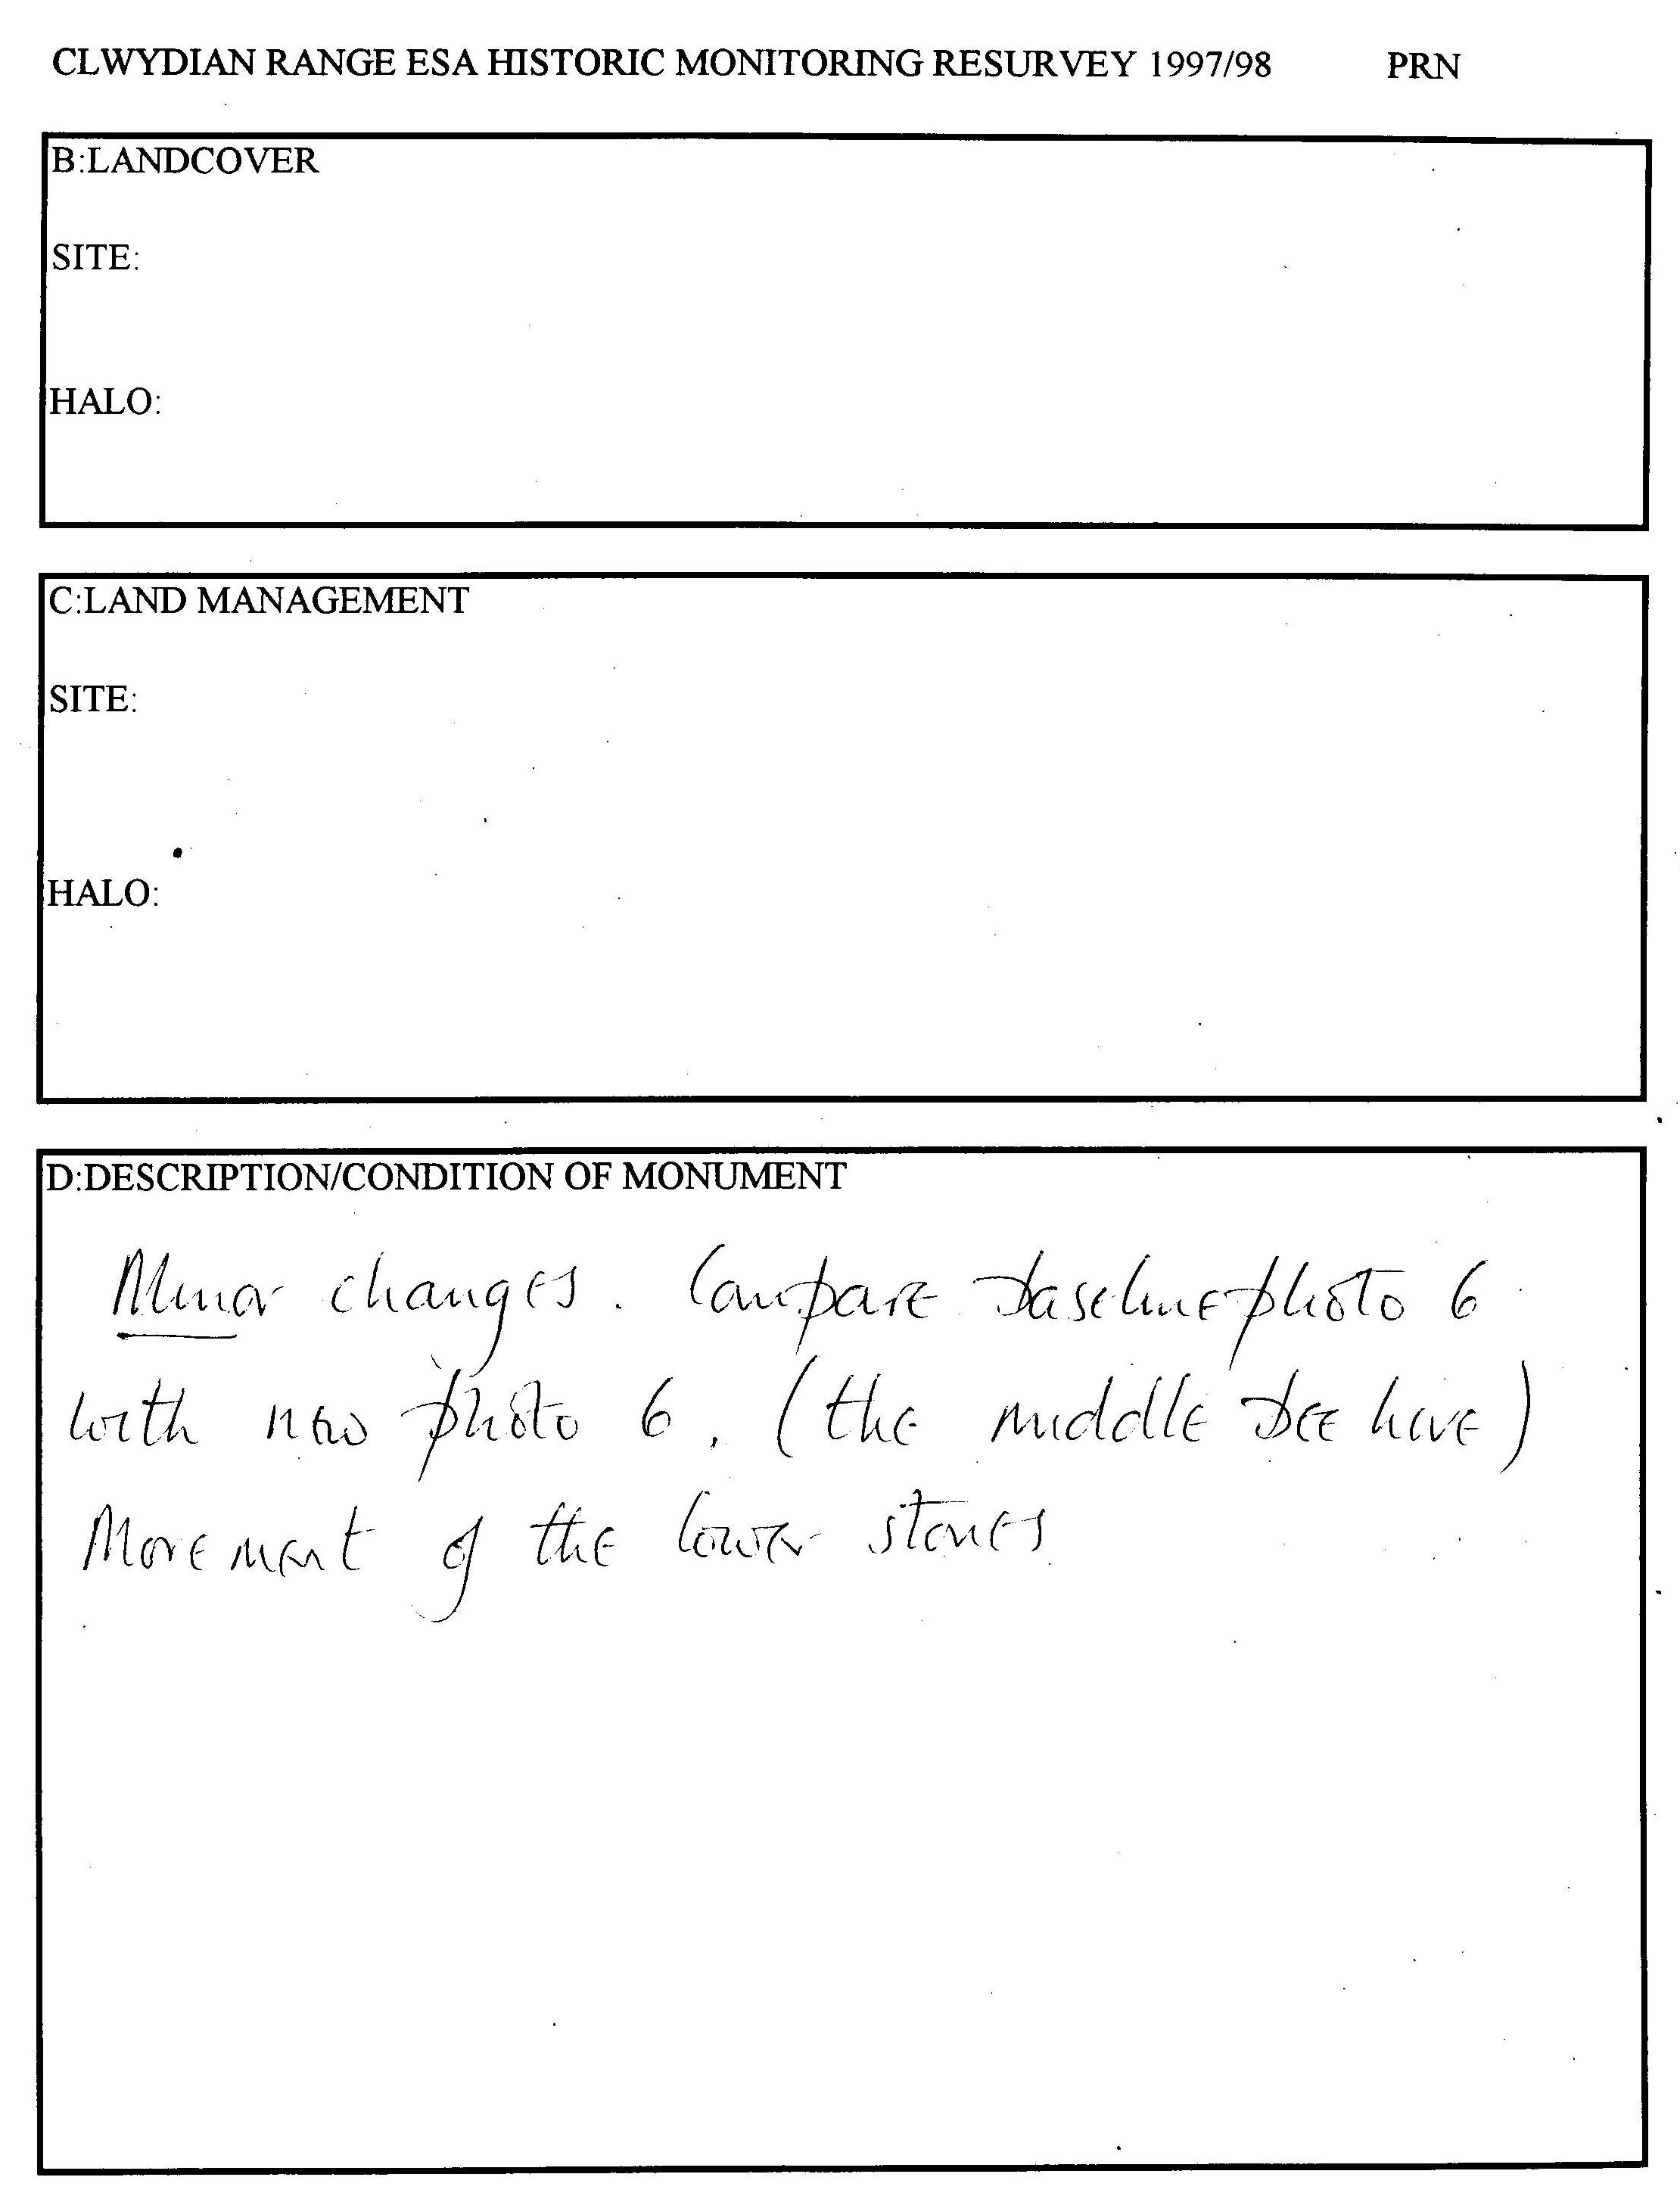 CLWYDIAN RANGE ESA HISTORIC MONITORING RESURVEY 1997/98 PRN
B:LANDCOVER
SITE:
HALO:
C:LAND MANAGEMENT
SITE:
HALO:
D:DESCRIPTION/CONDITION OF MONUMENT
Minor changes. Compare baseline photo 6
with new photo 6. (the middle bee hive)
Movement of the lower stones